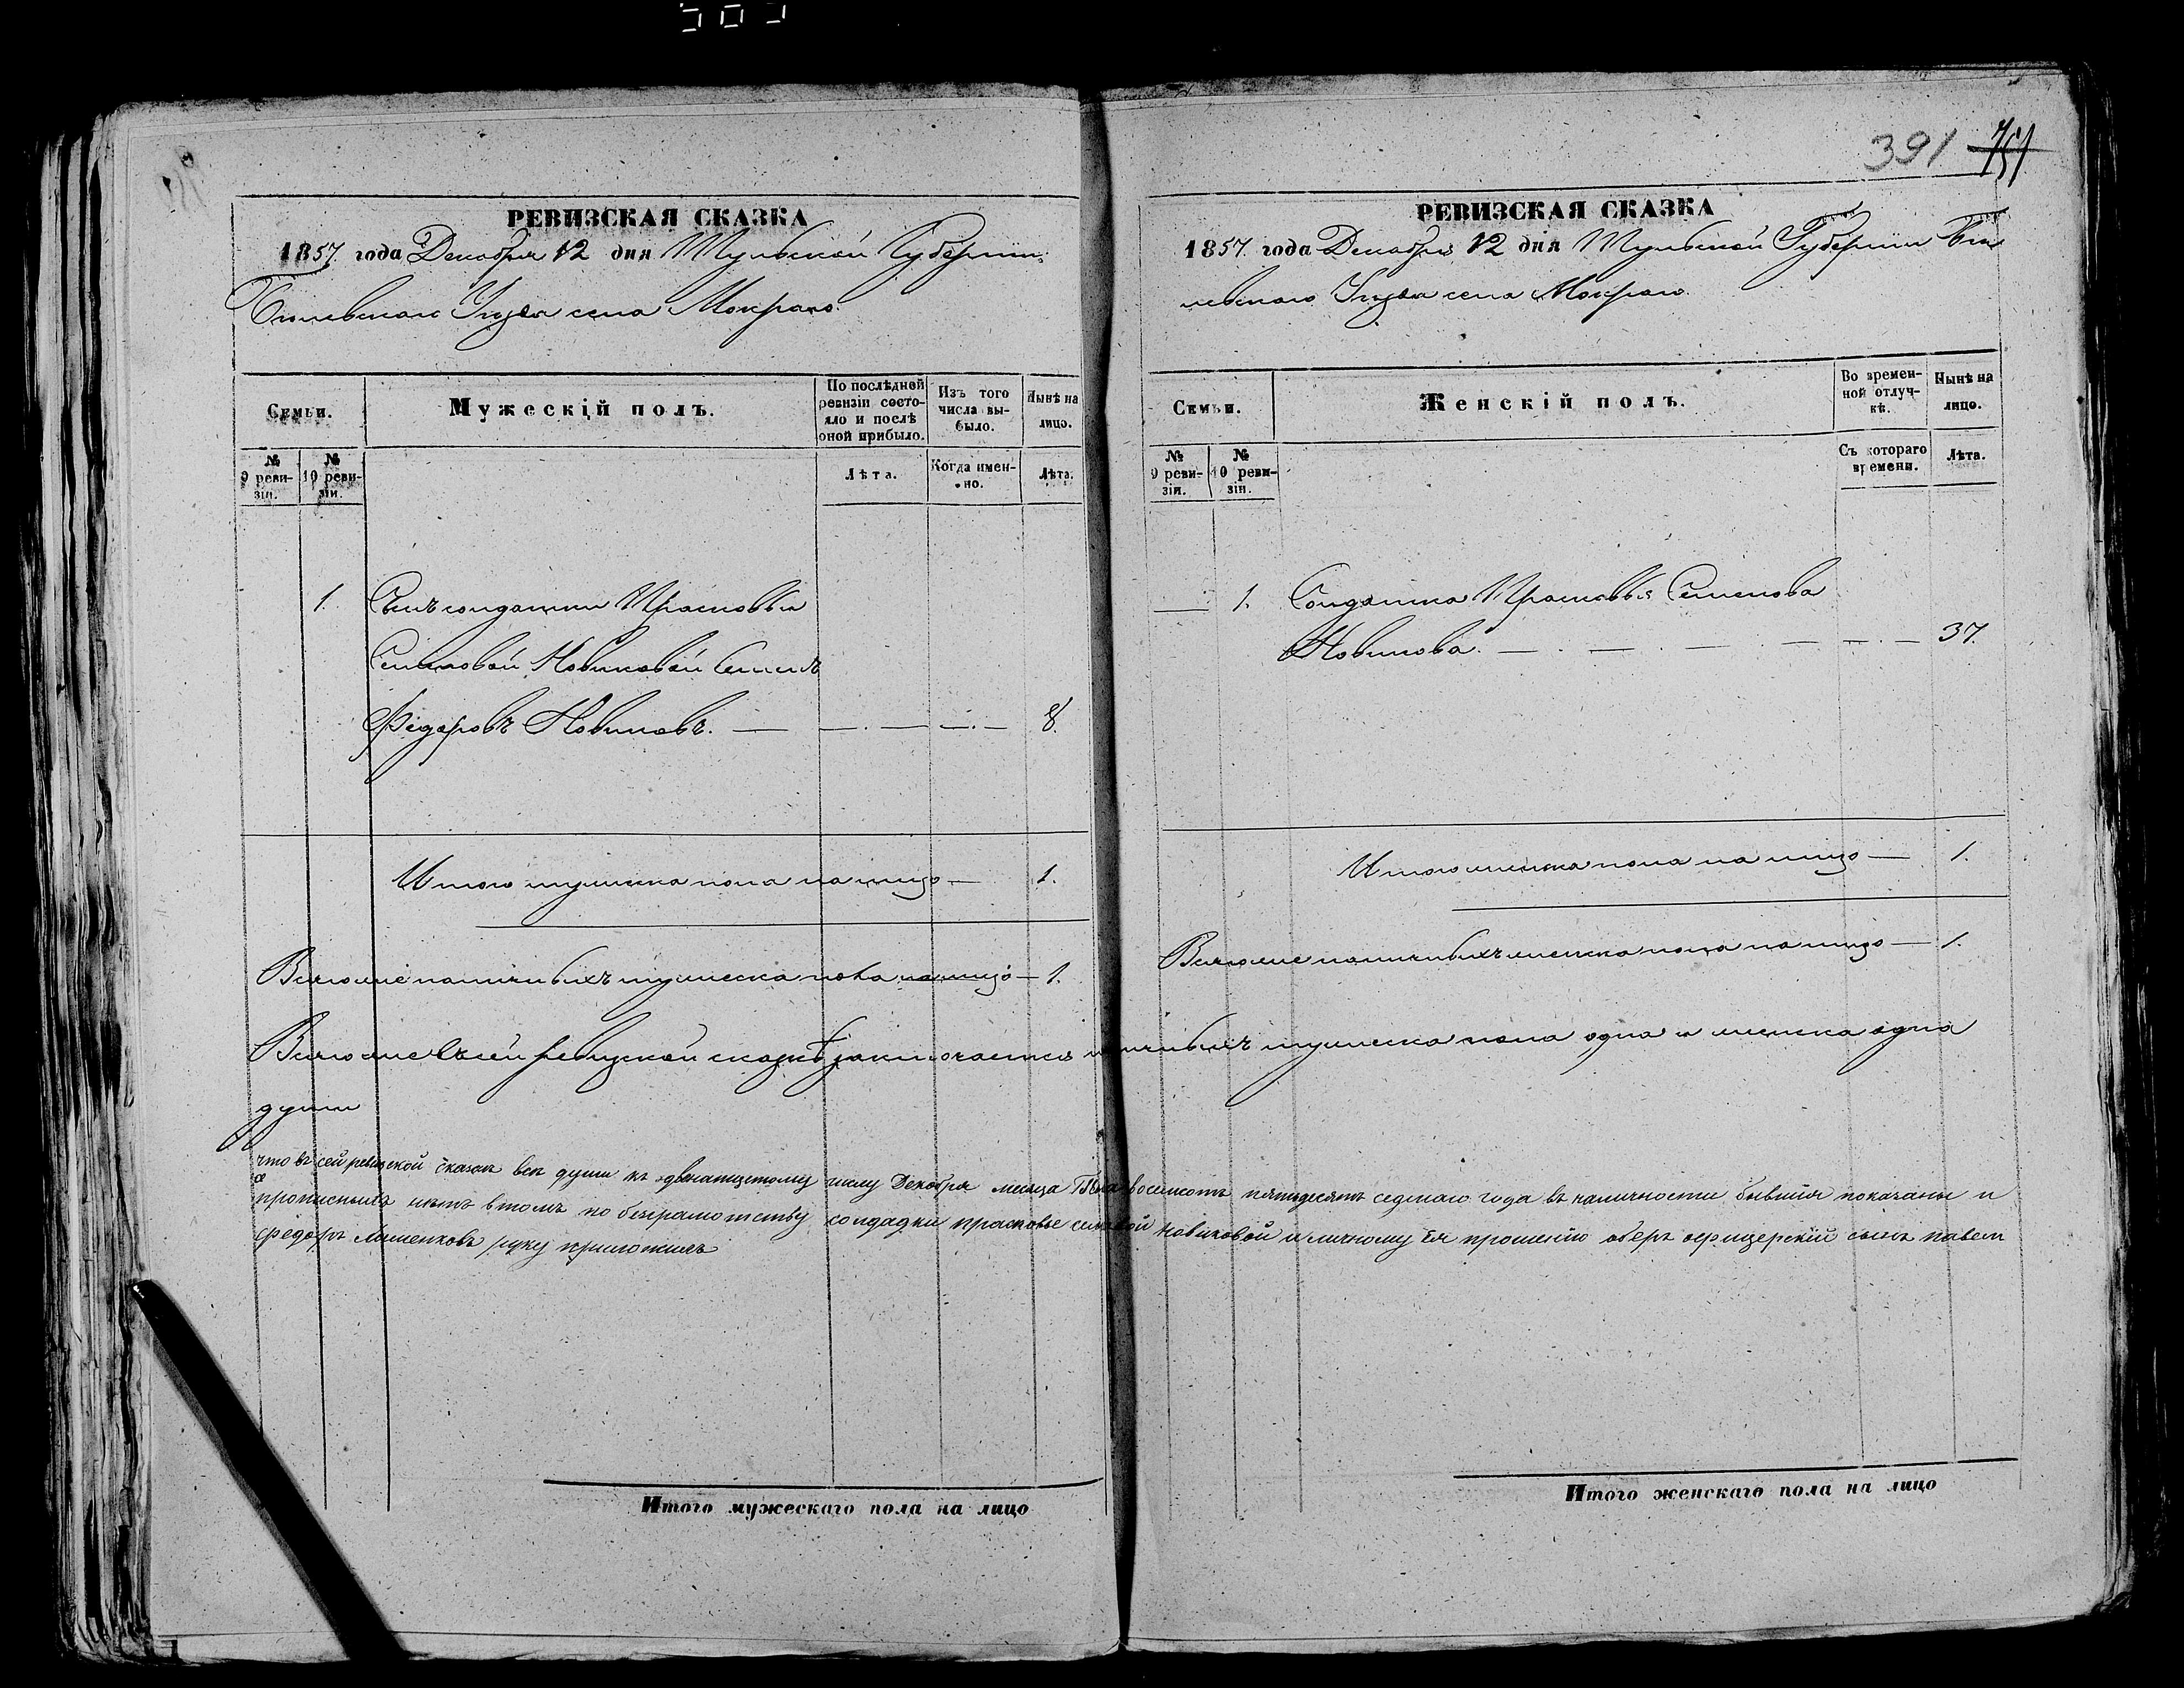 391 751
РЕВИЗСКАЯ СКАЗКА
1857. года Декабря 12 дня Тульской Губернiи
Бѣлевскаго Уѣзда села Мокраго.
Семьи.
Мужескiй полъ.
По послѣдней ревизiи состояло и послѣ оной прибыло.
Изъ того числа выбыло.
Нынѣ на лицо.
№ 9 ревизiи.
№ 10 ревизiи.
Лѣта.
Когда именно.
Лѣта.
1. Сынъ солдатки Прасковьи
Семеновой Новиковой Семенъ
Федоровъ Новиковъ. 8.
Итого мужеска пола на лицо 1.
Всего же наличныхъ мужеска пола на лицо 1.
РЕВИЗСКАЯ СКАЗКА
1857. года Декабря 12 дня Тульской Губернiи Бѣ
левскаго Уѣзда села Мокраго.
Семьи.
Женскiй полъ.
Во временной отлучкѣ.
Нынѣ на лицо.
№ 9 ревизiи.
№ 10 ревизiи.
Съ котораго времени.
Лѣта.
1. Солдатка Прасковья Семенова
Новикова. 37.
Итого женска пола на лицо 1.
Всего же наличныхъ женска пола на лицо 1.
Всего же въ сей ревизской сказкѣ заключается наличныхъ мужеска пола одна и женска одна
души
что въ сей ревиской сказке все души къ двенатцетому числу Декабря месяца восемсотъ пятьдесятъ седмаго года въ наличности бывшiя показаны и
прописныхъ нетъ в томъ по безграмотству солдадки прасковье семеновой Новиковой и личному Ея прошенiю оберъ офицерскiй сынъ павел
федоръ руку приложилъ
Итого мужескаго пола на лицо
Итого женскаго пола на лицо